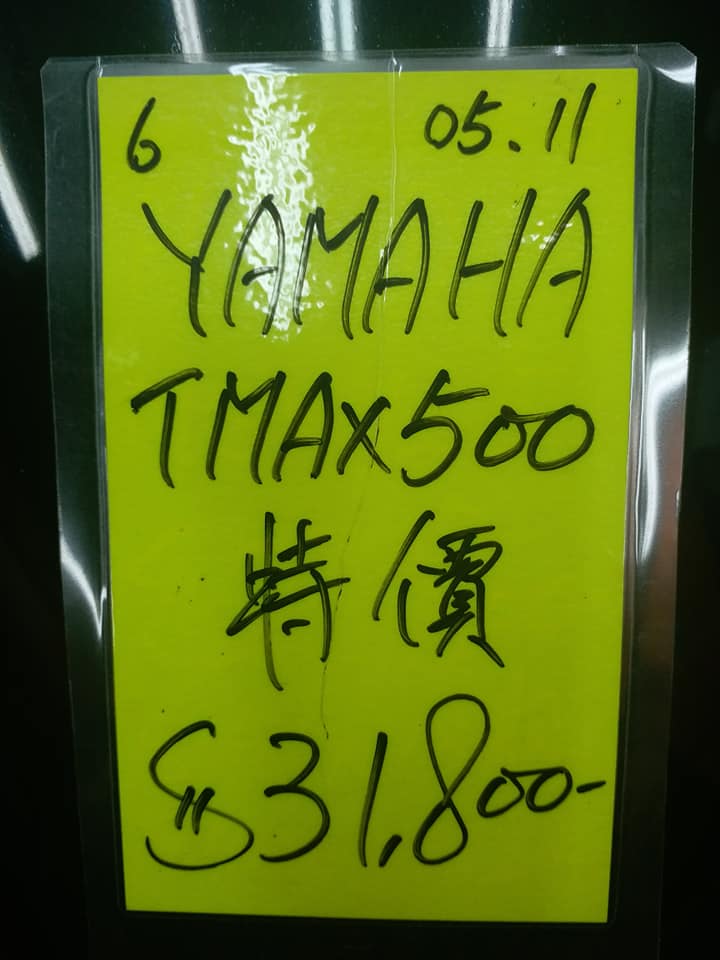 6 05.11
YAMAHA
TMAX500
特價
$31,800-